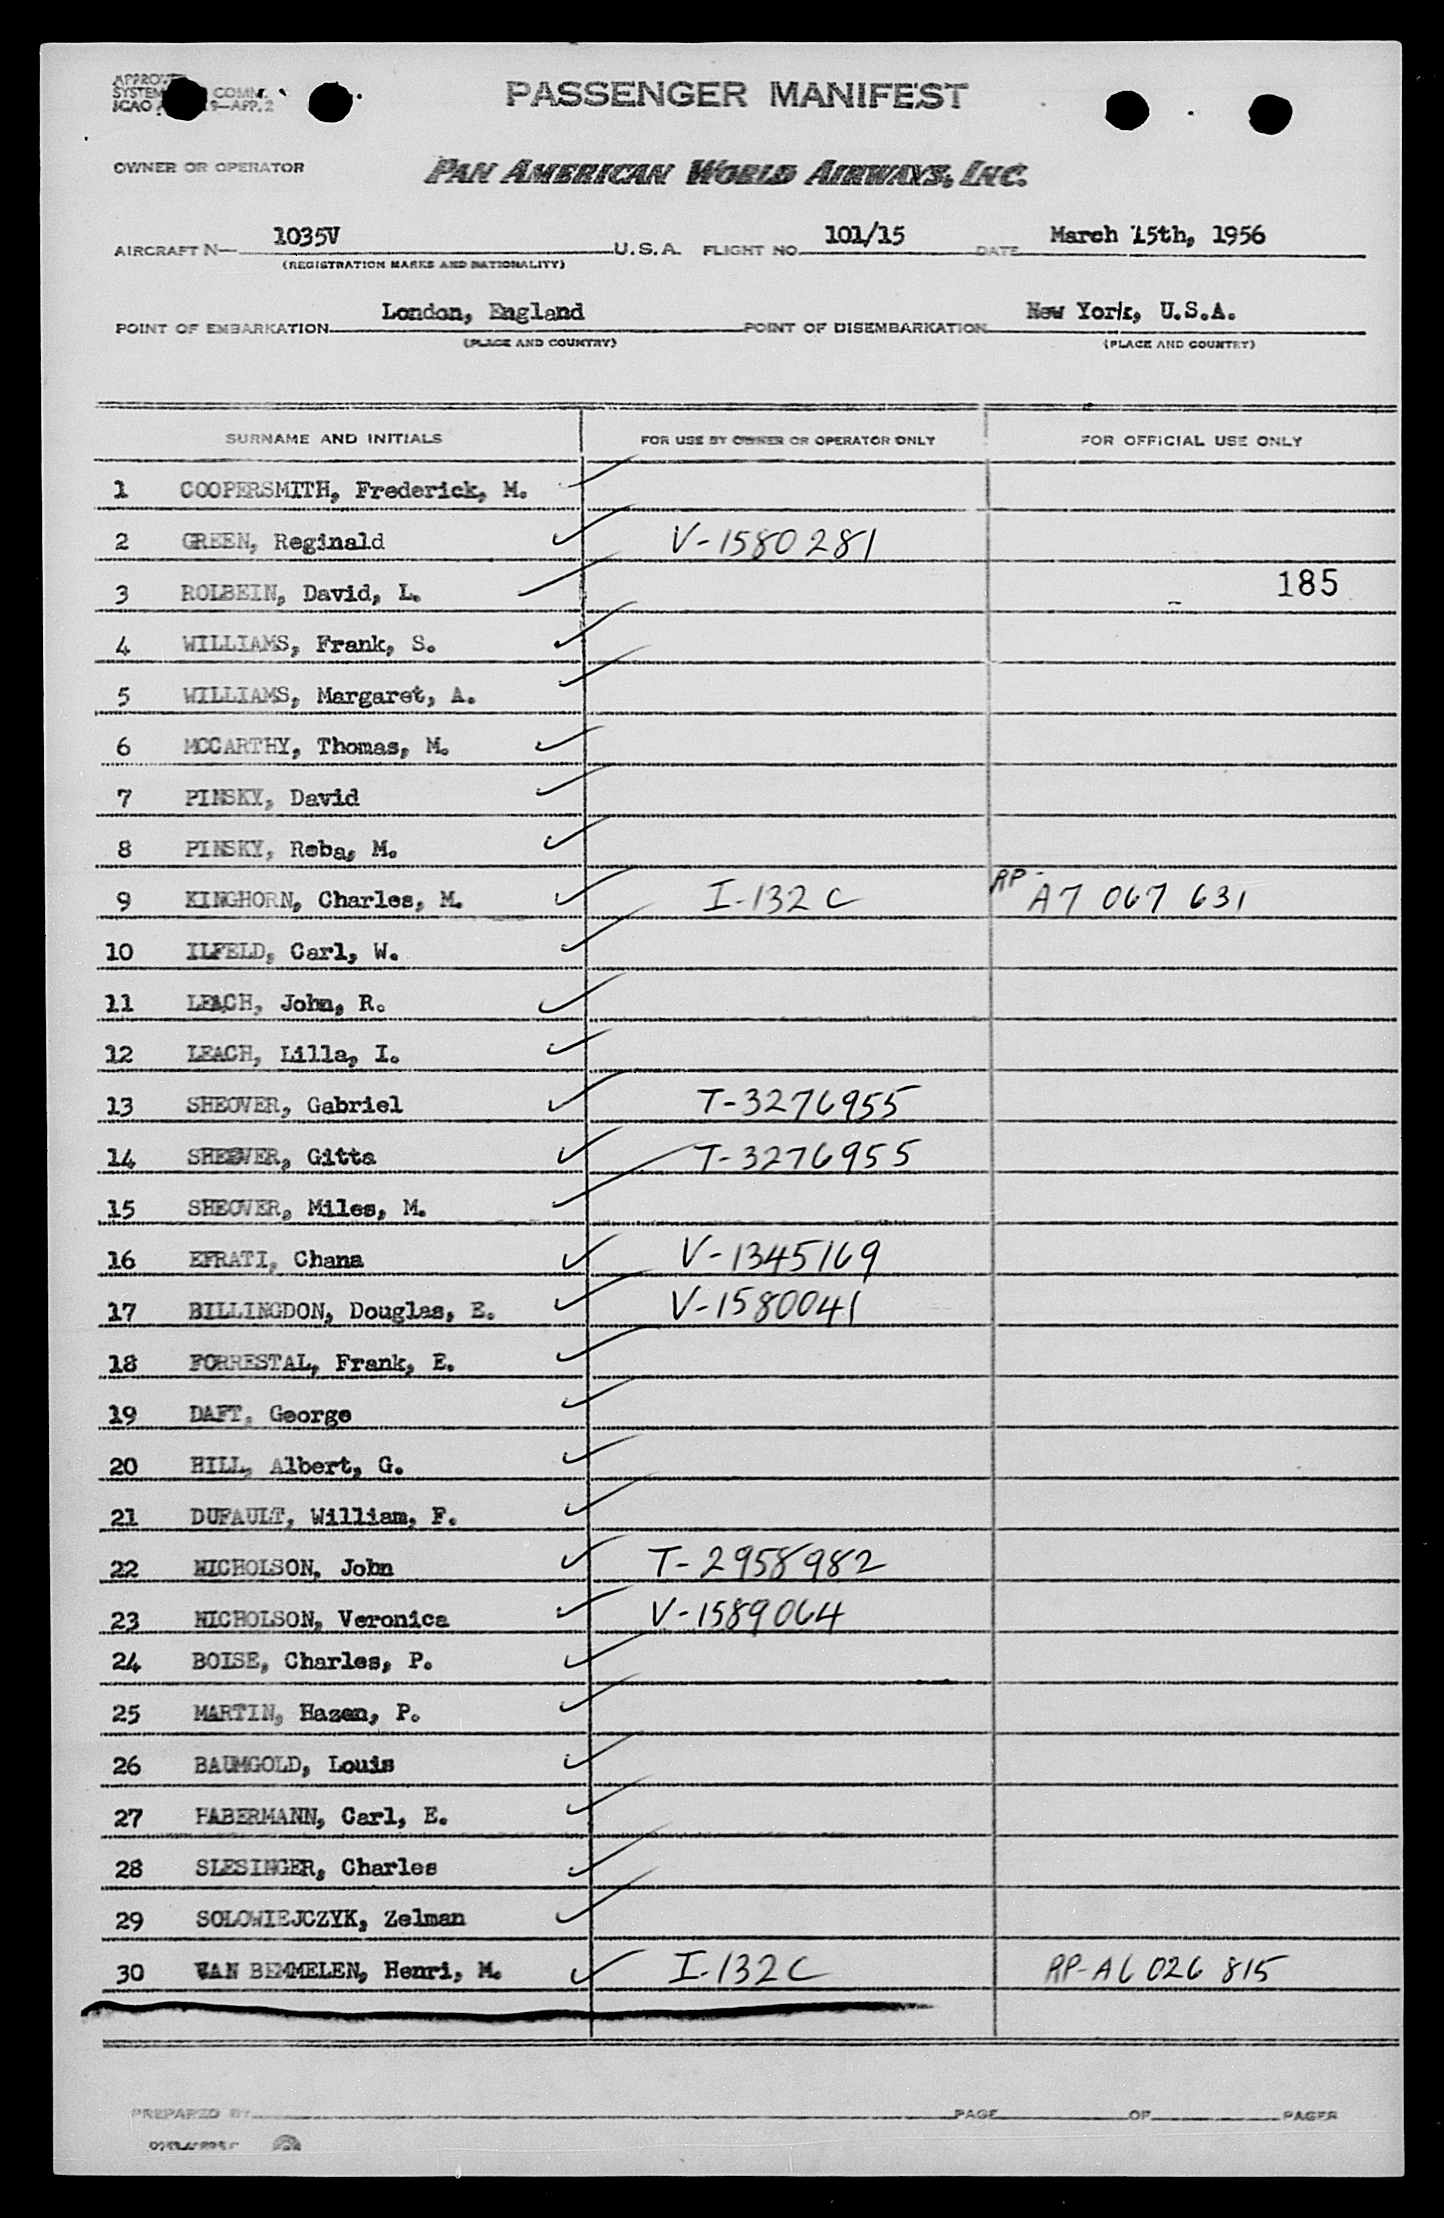 PASSENGER MANIFEST
OWNER OR OPERATOR PAN AMERICAN WORLD AIRWAYS, INC.
AIRCRAFT N— 1035V U.S.A. FLIGHT NO. 101/15 DATE March 15th, 1956
(REGISTRATION MARKS AND NATIONALITY)
POINT OF EMBARKATION London, England POINT OF DISEMBARKATION New York, U.S.A.
(PLACE AND COUNTRY) (PLACE AND COUNTRY)
SURNAME AND INITIALS FOR USE BY OWNER OR OPERATOR ONLY FOR OFFICIAL USE ONLY
1 COOPERSMITH, Frederick, M.
2 GREEN, Reginald V-1580281
3 ROLBEIN, David, L. 185
4 WILLIAMS, Frank, S.
5 WILLIAMS, Margaret, A.
6 MCCARTHY, Thomas, M.
7 PINSKY, David
8 PINSKY, Reba, M.
9 KINGHORN, Charles, M. I-132C RP-A7 067 631
10 ILFELD, Carl, W.
11 LEACH, John, R.
12 LEACH, Lilla, I.
13 SHEOVER, Gabriel T-3276955
14 SHEOVER, Gitta T-3276955
15 SHEOVER, Miles, M.
16 EFRATI, Chana V-1345169
17 BILLINGDON, Douglas, E. V-1580041
18 FORRESTAL, Frank, E.
19 DAFT, George
20 HILL, Albert, G.
21 DUFAULT, William, F.
22 NICHOLSON, John T-2958982
23 NICHOLSON, Veronica V-1589064
24 BOISE, Charles, P.
25 MARTIN, Hazen, P.
26 BAUMGOLD, Louis
27 HABERMANN, Carl, E.
28 SLESINGER, Charles
29 SOLOWIEJCZYK, Zelman
30 VAN BEMMELEN, Henri, M. I-132C RP-A6 026 815
PREPARED BY PAGE OF PAGES